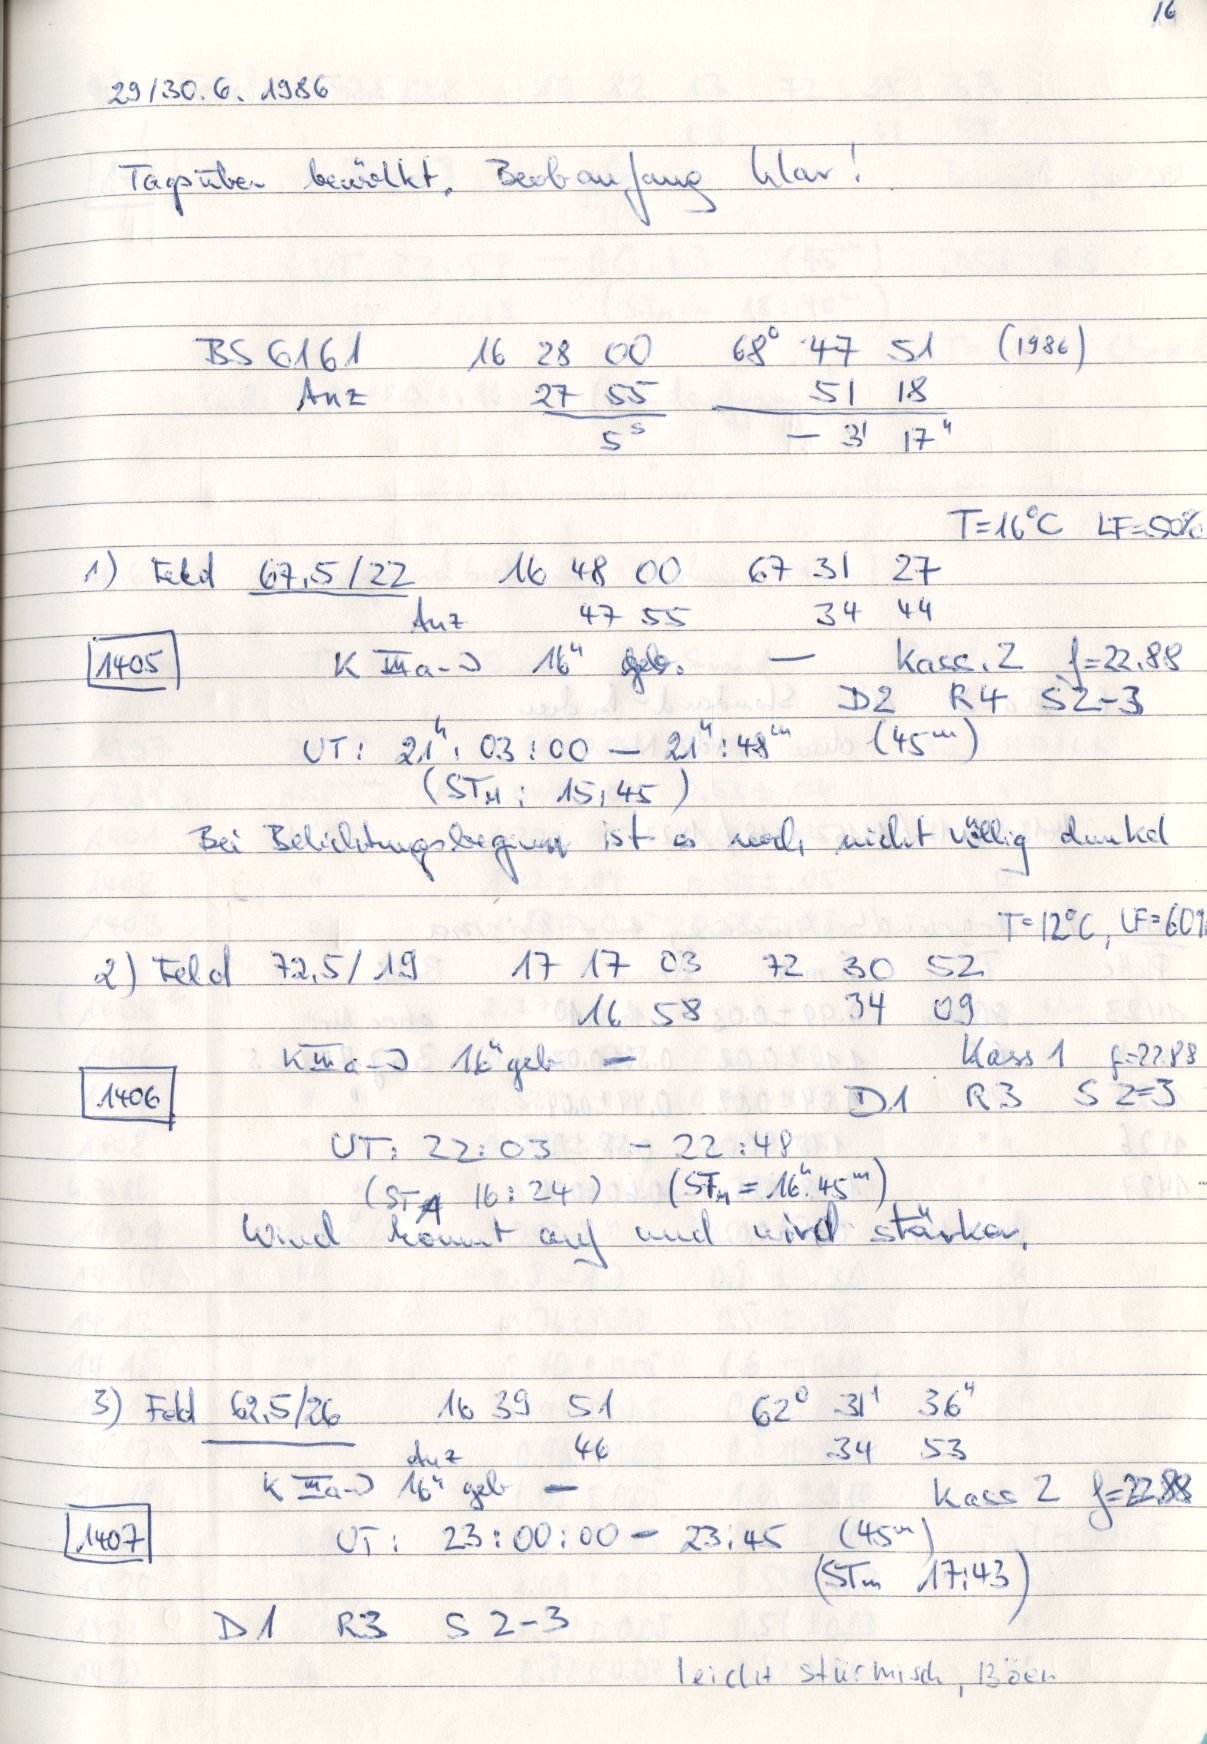 16
29/30.6. 1986
Tagsüber bewölkt, Beobanfang klar!
BS 6161 16 28 00 68° 47 51 (1986)
Anz 27 55 51 18
5s - 3' 17"
T=16°C LF=50%
1) Feld 67,5/22 16 48 00 67 31 27
Anz 47 55 34 44
1405 K IIIa-J 16h geb. — Kass. 2 f=22.88
D2 R4 S2-3
UT: 21h: 03:00 — 21h:48m (45m)
(STM: 15:45)
Bei Belichtungsbeginn ist es noch nicht völlig dunkel
T=12°C, LF=60%
2) Feld 72,5/19 17 17 03 72 30 52
16 58 34 09
K IIIa-J 16h geb — Kass 1 f=22.88
1406 D1 R3 S 2-3
UT: 22:03 - 22:48
(STA 16:24) (STM = 16h:45m)
Wind kommt auf und wird stärker.
3) Feld 62,5/26 16 39 51 62° 31' 36"
Anz 46 34 53
K IIIa-J 16h geb — Kass 2 f=22.88
1407 UT: 23:00:00 - 23:45 (45m)
(STm 17:43)
D1 R3 S 2-3
leicht stürmisch, Böen